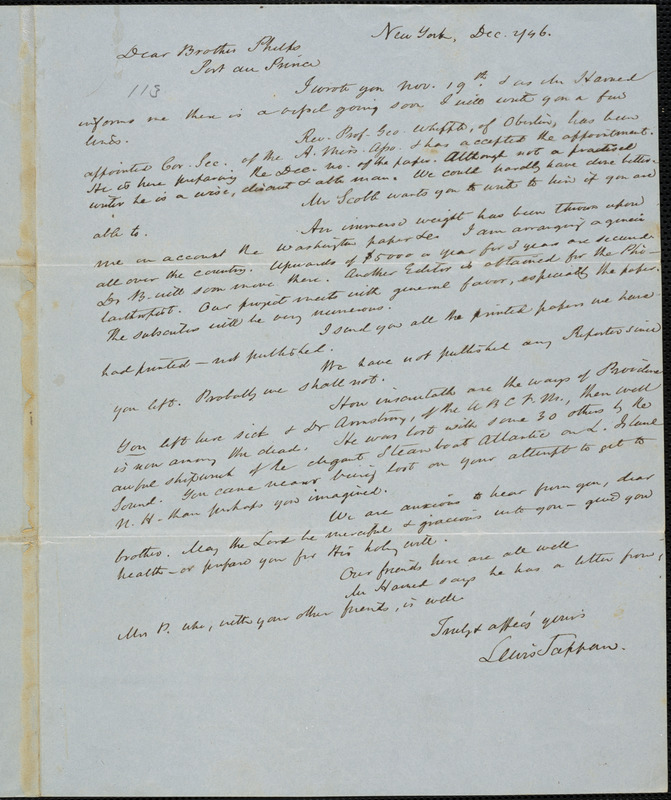 New York, Dec. 2/46.
Dear Brother Phelps
Port au Prince
113
I wrote you Nov. 19th & as Mr Harned
informs me there is a vessel going soon I will write you a few
lines.
Rev. Prof. Geo. Whipple, of Oberlin, has been
appointed Cor. Sec. of the A. Miss. Asso. & has accepted the appointment.
He is here preparing the Dec. no. of the paper. Although not a practised
writer he is a wise, discreet & able man. We could hardly have done better.
Mr Scoble wants you to write to him if you are
able to.
An immense weight has been thrown upon
me on account the Washington paper &c. I am arranging agencies
all over the country. Upwards of $5000 a year for 3 years are secured.
Dr B. will soon move there. Another Editor is obtained for the Phi-
lanthropist. Our project meets with general favor, especially the paper.
The subscribers will be very numerous.
I send you all the printed papers we have
had printed — not published.
We have not published any Reporter since
you left. Probably we shall not.
How inscrutable are the ways of Providence
You left here sick & Dr Armstrong, of the A B C F. Ms., then well
is now among the dead. He was lost with some 30 others by the
awful shipwreck of the elegant Steamboat Atlantic on L. Island
Sound. You came nearer being lost on your attempt to get to
N. H. than perhaps you imagined.
We are anxious to hear from you, dear
brother. May the Lord be merciful & gracious unto you — give you
health — or prepare you for His holy will.
Our friends here are all well
Mr Harned says he has a letter from
Mrs P. who, with your other friends, is well
Truly & affec'y yours
Lewis Tappan.